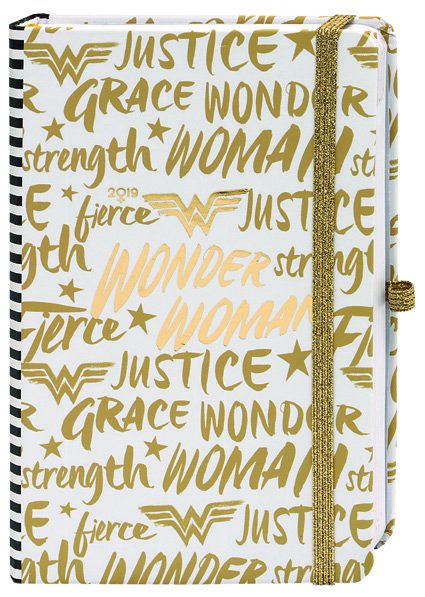 JUSTICE
GRACE WONDER
strength WOMAN
2019
fierce JUSTICE
WONDER strength
Fierce WOMAN
JUSTICE
GRACE WONDER
strength WOMAN
fierce JUSTICE
WONDER